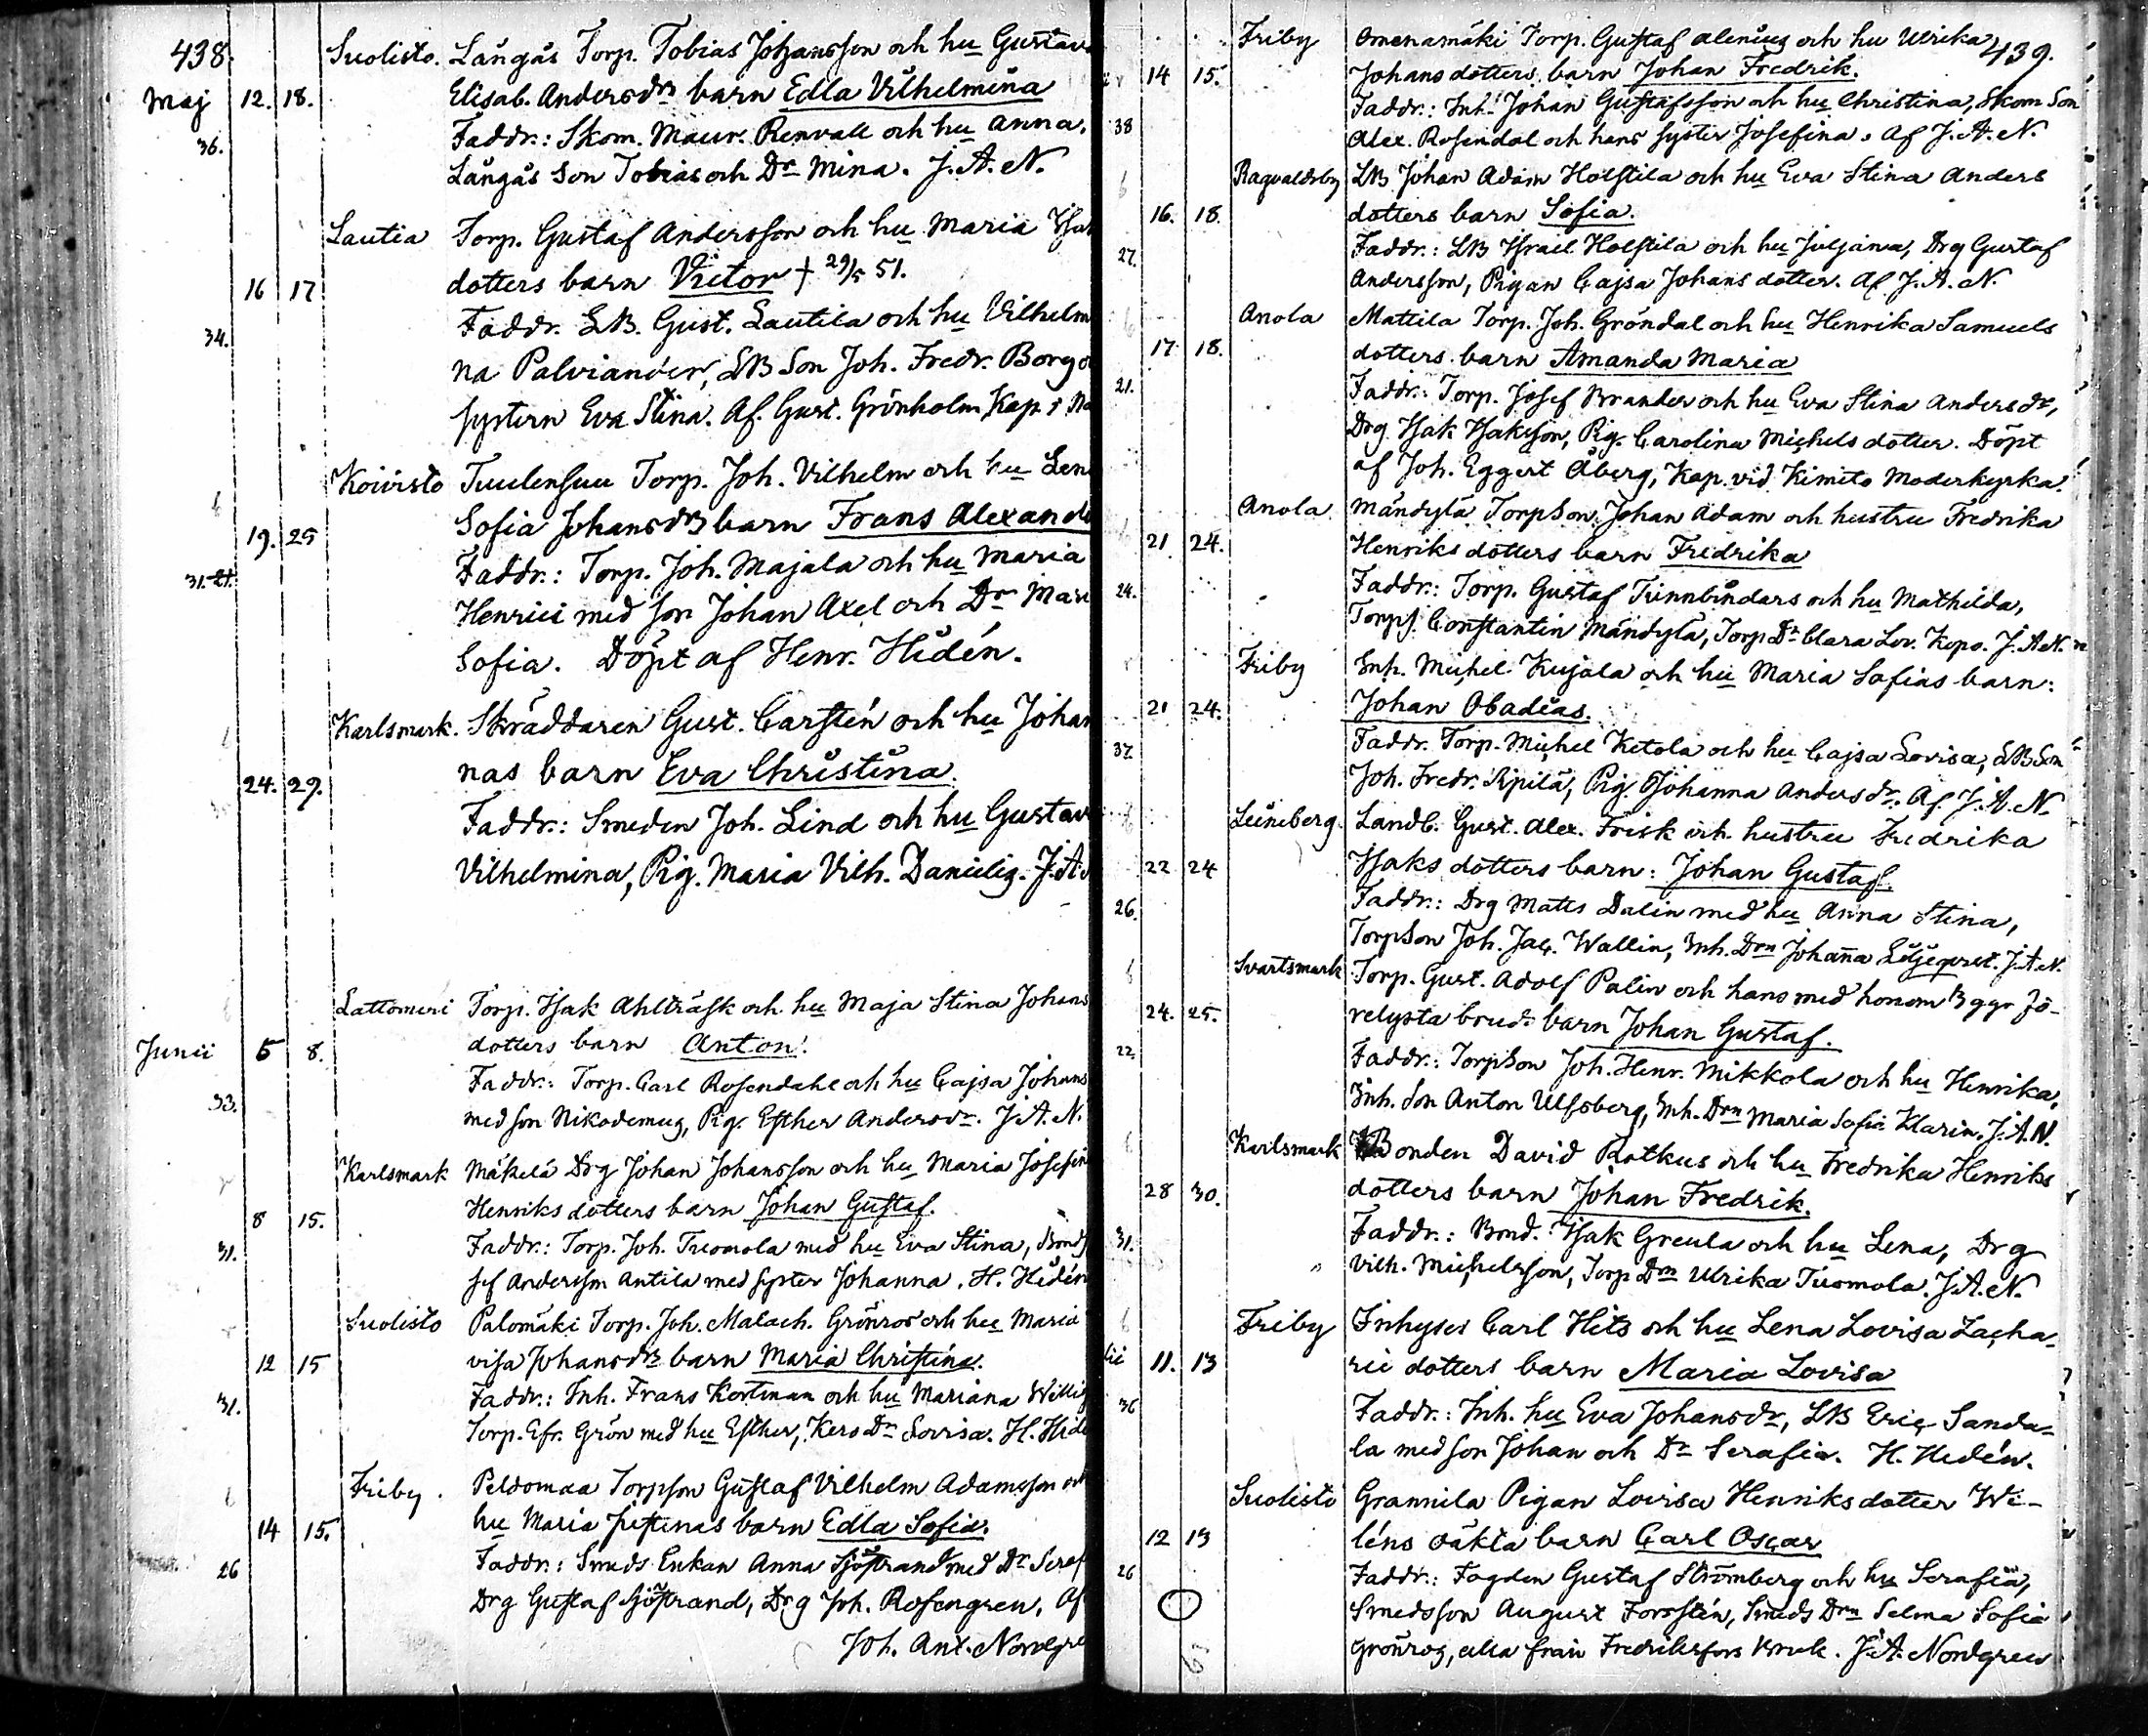 438.
Suolisto. Långås Torp. Tobias Johansson och hu Gustava
Maj 12. 18. Elisab. Andersdrs barn Edla Vilhelmina
Faddr.: Skom. Maur. Renvall och hu Anna,
36. Långås Son Tobias och Dr Mina. J. A. N.
Lautia Torp. Gustaf Andersson och hu Maria Isak
16 17 dotters barn Victor + 29/5 51.
Faddr. LB. Gust. Lautila och hu Vilhelm
34. na Palviander, LB Son Joh. Fredr. Borg o
systern Eva Stina. Af. Gust. Grönholm Kap. i Na
Koivisto Tuulensuu Torp. Joh. Vilhelm och hu Len
19. 25 Sofia Johansdrs barn Frans Alexande
Faddr.: Torp. Joh. Majala och hu Maria
31. 21. Henrici med son Johan Axel och Dr Mari
Sofia. Döpt af Henr. Hidén.
Karlsmark. Skräddaren Gust. Carstén och hu Johan
24. 29. nas barn Eva Christina.
Faddr.: Smeden Joh. Lind och hu Gustav
Vilhelmina, Pig. Maria Vilh. Danielig. J. A.
Lattomeri Torp. Isak Ahlträsk och hu Maja Stina Johans
Junii 5 8. dotters barn Anton.
Faddr.: Torp. Carl Rosendahl och hu Cajsa Johans
33. med son Nikodemus, Pig. Esther Andersdr. J. A. N.
Karlsmark Mäkelä Drg Johan Johansson och hu Maria Josefin
8 15. Henriks dotters barn Johan Gustaf.
31. Faddr.: Torp. Joh. Tuomola med hu Eva Stina, Bond
sf Andersson Antila med syster Johanna. H. Hidén
Suolisto Palomäki Torp. Joh. Malach. Grönros och hu Maria
12 15 visa Johansdrs barn Maria Christina.
31. Faddr.: Inh. Frans Kortman och hu Mariana Willig
Torp. Efr. Grön med hu Esther, Kers Dr Lovisa. H. Hidé
Friby. Peldomaa Torpson Gustaf Vilhelm Adamsson och
14 15. hu Maria Justinas barn Edla Sofia.
26 Faddr.: Smeds Enkan Anna Sjöstrand med Dr Seraf
Drg Gustaf Sjöstrand, Drg Joh. Rosengren, Af
Joh. Ant. Nordgre
439.
Friby Omenamäki Torp. Gustaf Alenius och hu Ulrika
14 15. Johans dotters barn Johan Fredrik.
38 Faddr.: Inh. Johan Gustafsson och hu Christina, Skom Son
Alex. Rosendal och hans syster Josefina. Af J. A. N.
Ragvaldsby LB Johan Adam Holstila och hu Eva Stina Anders
16. 18. dotters barn Sofia.
27. Faddr.: LB Israel Holstila och hu Juljana, Drg Gustaf
Andersson, Pigan Cajsa Johans dotter. Af J. A. N.
Anola Mattila Torp. Joh. Gröndal och hu Henrika Samuels
17 18. dotters barn Amanda Maria
21. Faddr.: Torp. Josef Brander och hu Eva Stina Andersdr,
Drg Isak Isaksson, Pig. Carolina Michels dotter. Döpt
af Joh. Eggert Åberg, Kap. vid Kimito Moderkyrka.
Anola Mändylä TorpSon Johan Adam och hustru Fredrika
21 24. Henriks dotters barn Fredrika
24. Faddr.: Torp. Gustaf Tunnbindars och hu Mathilda,
Torps. Constantin Mändylä, Torp Dr Clara Lov. Kepo. J. A. N.
Friby Inh. Michel Kujala och hu Maria Sofias barn:
21 24. Johan Obadias.
37. Faddr. Torp. Michel Ketola och hu Cajsa Lovisa, LB Son
Joh. Fredr. Sipilä, Pig. Johanna Andersdr. Af J. A. N
Leineberg. Landb. Gust. Alex. Frisk och hustru Fredrika
22 24 Isaks dotters barn: Johan Gustaf.
26. Faddr.: Drg Matts Dalin med hu Anna Stina,
TorpSon Joh. Jac. Wallin, Inh. Drn Johanna Liljeqvist. J. A. N.
Svartsmark Torp. Gust. Adolf Palin och hans med honom 3 ggr fö-
24. 25. relysta brud: barn Johan Gustaf.
22 Faddr.: TorpSon Joh. Henr. Mikkola och hu Henrika,
Inh. Son Anton Ulfsberg, Inh. Drn Maria Sofia Klarin. J. A. N.
Karlsmark Bonden David Ratkus och hu Fredrika Henriks
28 30. dotters barn Johan Fredrik.
31. Faddr.: Bond. Isak Greula och hu Lena, Drg
Vilh. Michelsson, Torp Drn Ulrika Tuomola. J. A. N.
Friby Inhyses Carl Hits och hu Lena Lovisa Zacha-
lii 11. 13 rie dotters barn Maria Lovisa
36 Faddr.: Inh. hu Eva Johansdr, LB Eric Sanda-
la med son Johan och Dr Serafia. H. Hedén.
Suolisto Grannila Pigan Lovisa Henriks dotter Wi-
12 13 léns oäkta barn Carl Oscar
26 Faddr.: Fogden Gustaf Strömberg och hu Serafia,
Smedsson August Forsstén, Smeds Drn Selma Sofia
Grönros, alla från Fredriksfors bruk. J. A. Nordgren